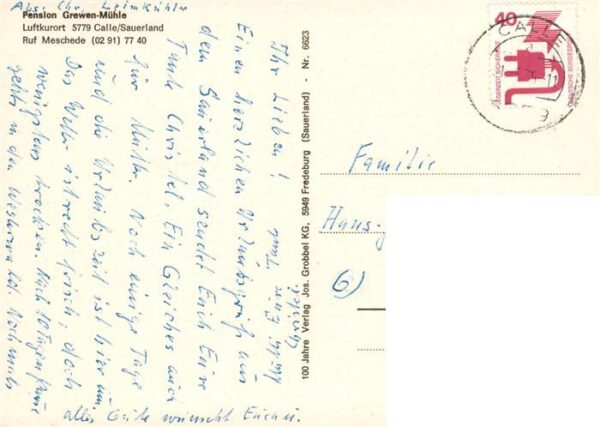 Abs. Chr. Leimkühler
Pension Grewen-Mühle
Luftkurort 5779 Calle/Sauerland
Ruf Meschede (02 91) 77 40
Ihr Lieben!
Einen herzlichen Urlaubsgruß aus
dem Sauerland sendet Euch Eure
Tante Christel. Ein Gleiches auch
für Mutter. Noch einige Tage
und die Urlaubszeit ist hier um
Das Wetter ist recht frisch, doch
wenigstens trocken. Nach 10 tgen Pause
gehts in den Westerwald. Nochmals
alles Gute wünscht Euch u.
Mutti Eure Tante
Christel
100 Jahre Verlag Jos. Grobbel KG, 5949 Fredeburg (Sauerland) - Nr. 6623
40
JEDERZEIT SICHERHEIT
DEUTSCHE BUNDESPOST
CALLE
Familie
Hans-J
6)